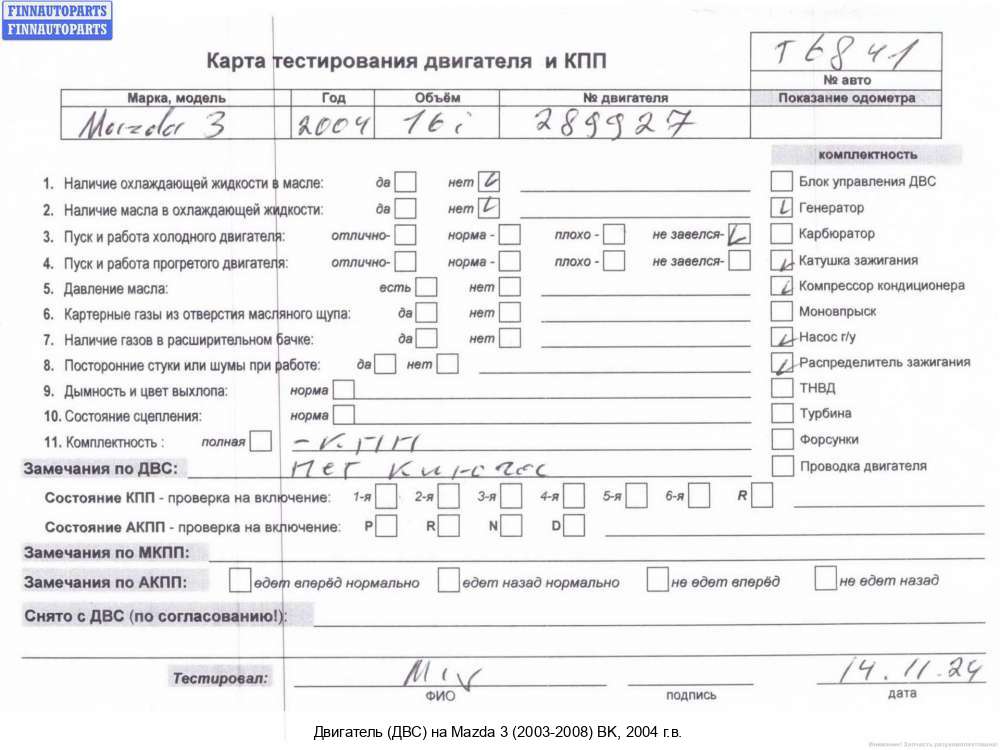 FINNAUTOPARTS
FINNAUTOPARTS
Карта тестирования двигателя и КПП
Т6841
№ авто
Марка, модель Год Объём № двигателя Показание одометра
Mazda 3 2004 16i 289927
комплектность
1. Наличие охлаждающей жидкости в масле: да нет Блок управления ДВС
2. Наличие масла в охлаждающей жидкости: да нет Генератор
3. Пуск и работа холодного двигателя: отлично- норма - плохо - не завелся- Карбюратор
4. Пуск и работа прогретого двигателя: отлично- норма - плохо - не завелся- Катушка зажигания
5. Давление масла: есть нет Компрессор кондиционера
6. Картерные газы из отверстия масляного щупа: да нет Моновпрыск
7. Наличие газов в расширительном бачке: да нет Насос г/у
8. Посторонние стуки или шумы при работе: да нет Распределитель зажигания
9. Дымность и цвет выхлопа: норма ТНВД
10. Состояние сцепления: норма Турбина
11. Комплектность : полная - К.ПП Форсунки
Замечания по ДВС: нет Проводка двигателя
Состояние КПП - проверка на включение: 1-я 2-я 3-я 4-я 5-я 6-я R
Состояние АКПП - проверка на включение: P R N D
Замечания по МКПП:
Замечания по АКПП: едет вперёд нормально едет назад нормально не едет вперёд не едет назад
Снято с ДВС (по согласованию!):
Тестировал: 14.11.24
ФИО подпись дата
Двигатель (ДВС) на Mazda 3 (2003-2008) BK, 2004 г.в.